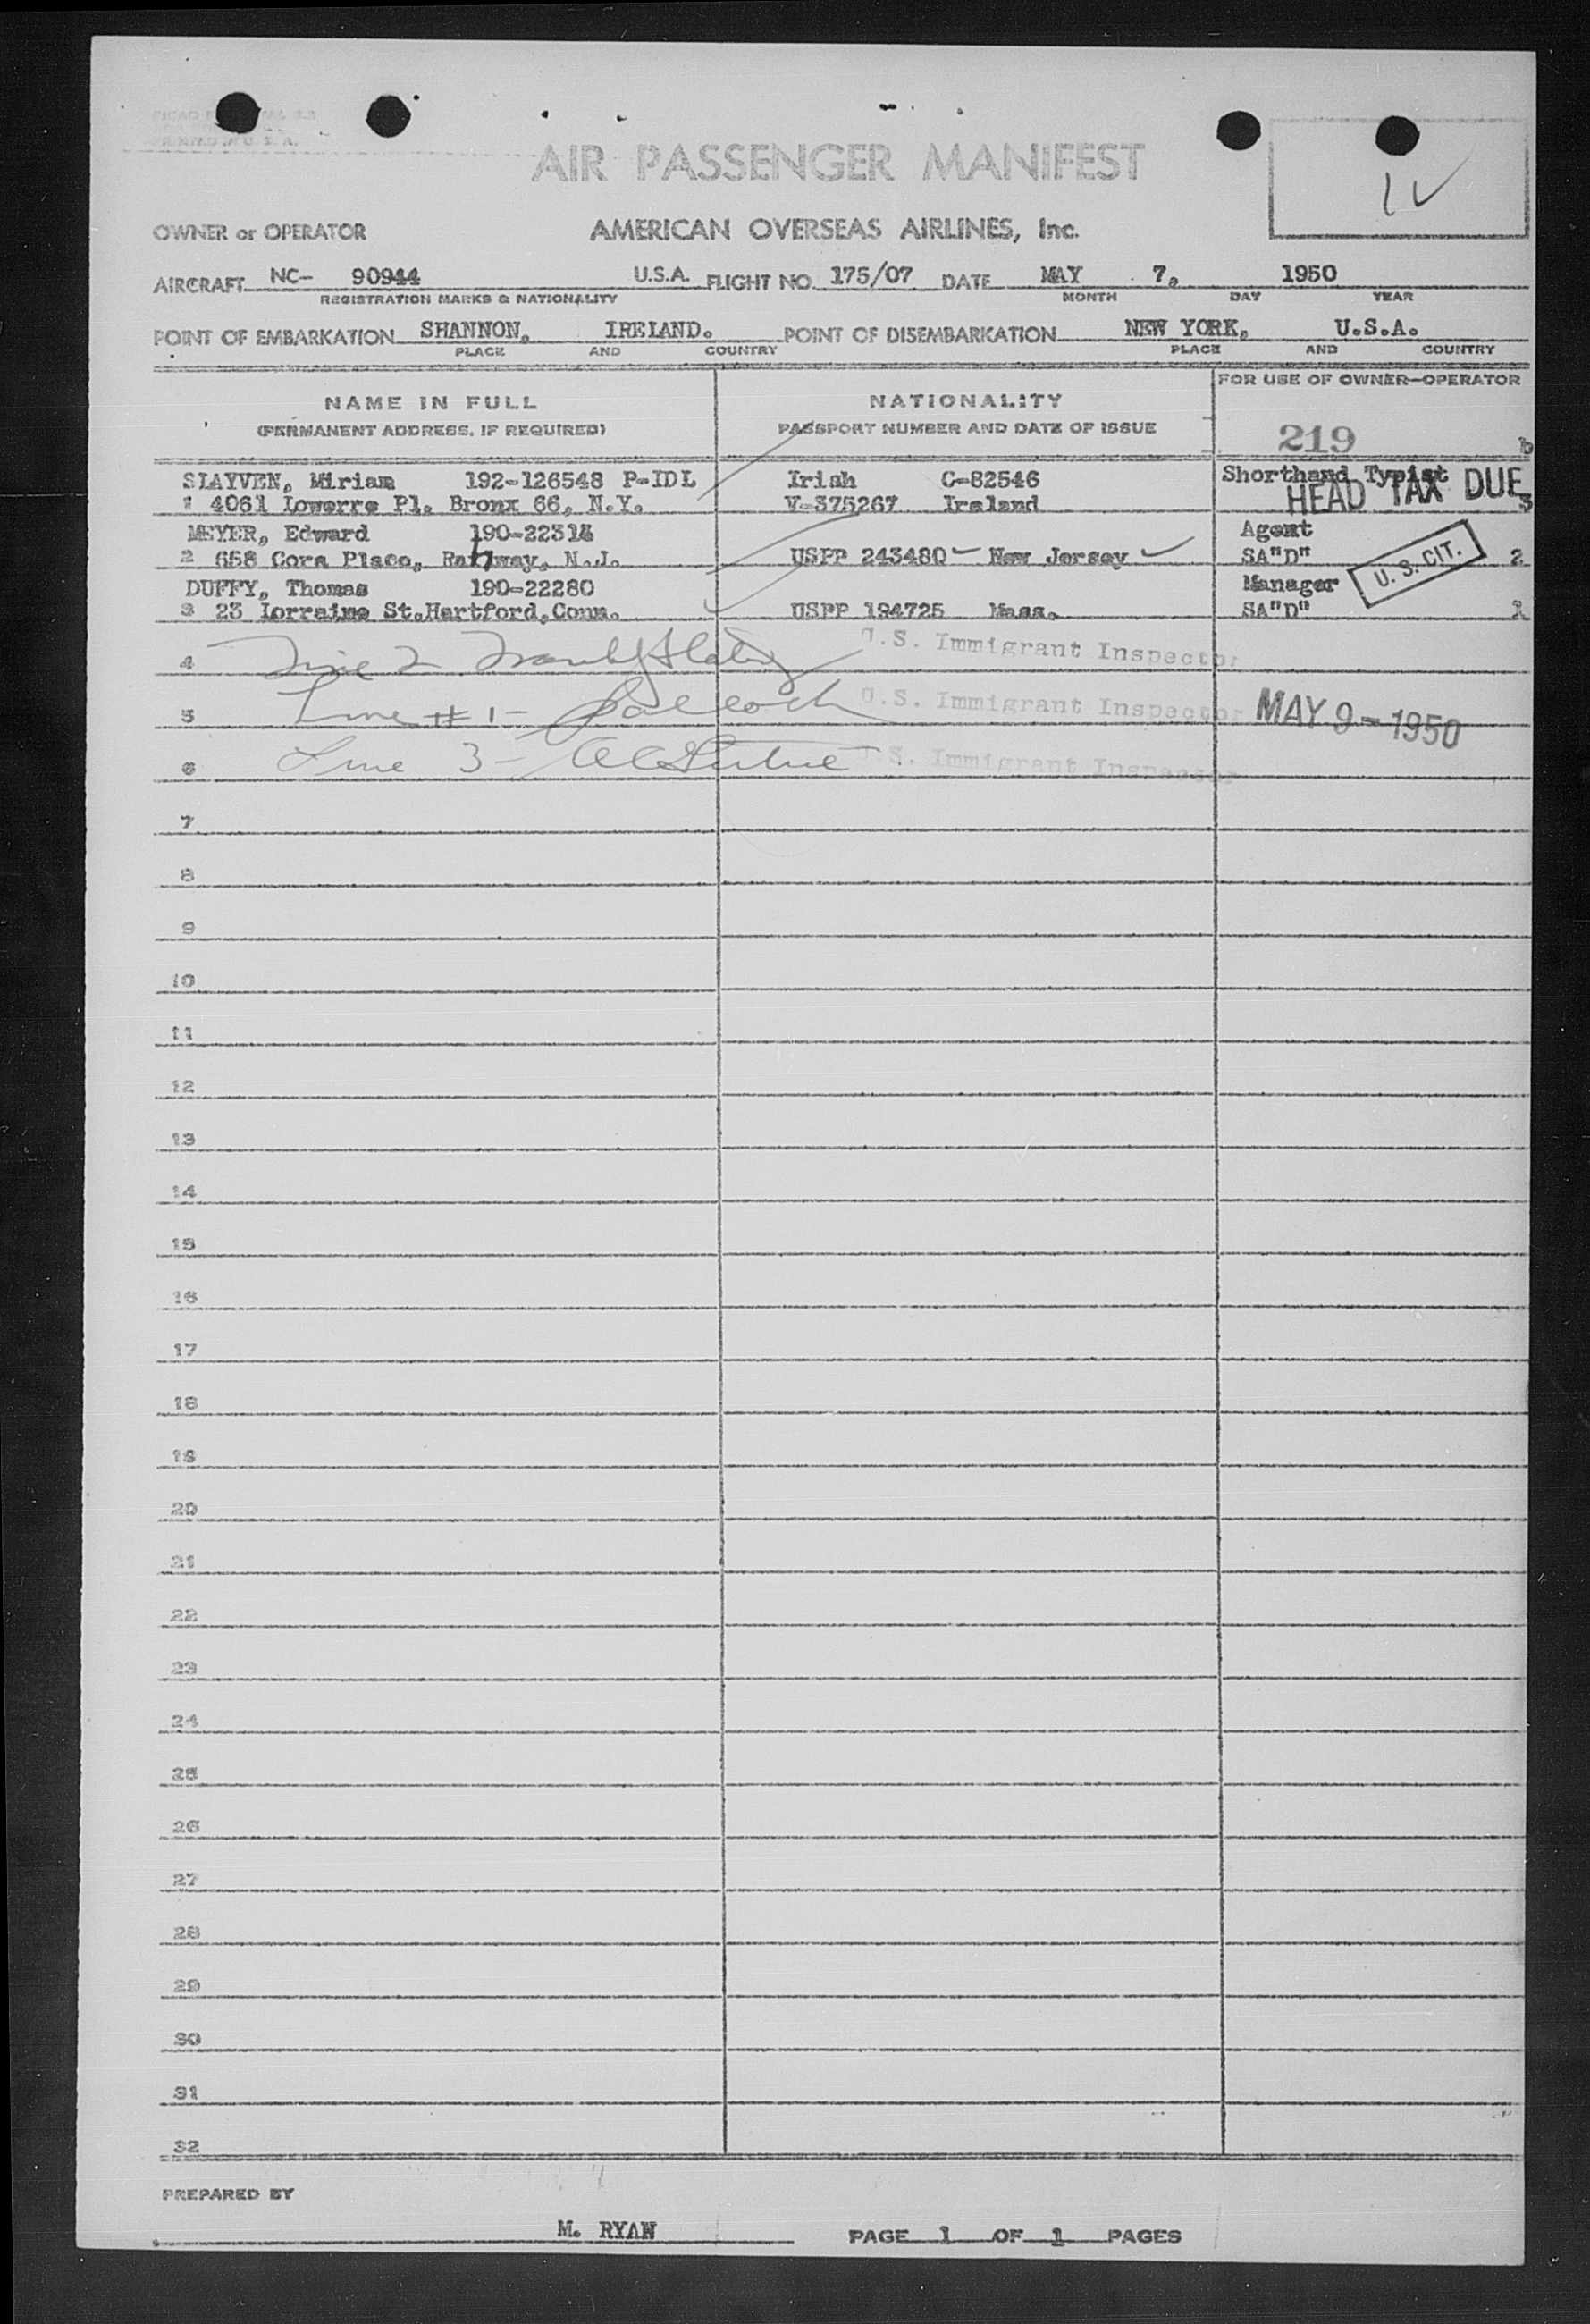 AIR PASSENGER MANIFEST
1
OWNER or OPERATOR AMERICAN OVERSEAS AIRLINES, Inc.
AIRCRAFT NC- 90944 U.S.A. FLIGHT NO. 175/07 DATE MAY 7, 1950
REGISTRATION MARKS & NATIONALITY MONTH DAY YEAR
POINT OF EMBARKATION SHANNON, IRELAND. POINT OF DISEMBARKATION NEW YORK, U.S.A.
PLACE AND COUNTRY PLACE AND COUNTRY
NAME IN FULL NATIONALITY FOR USE OF OWNER-OPERATOR
(PERMANENT ADDRESS, IF REQUIRED) PASSPORT NUMBER AND DATE OF ISSUE
219 b
SLAYVEN, Miriam 192-126548 P-IDL Irish C-82546 Shorthand Typist
HEAD TAX DUE
1 4061 Lowerre Pl. Bronx 66, N.Y. V-375267 Ireland 3
MEYER, Edward 190-22314 Agent
2 658 Cora Place, Rahway, N.J. USPP 243480 New Jersey SA"D" U.S. CIT. 2
DUFFY, Thomas 190-22280 Manager
3 23 Lorraine St. Hartford, Conn. USPP 194725 Mass. SA"D" 1
4 Line 2 U.S. Immigrant Inspector
5 Line #1- U.S. Immigrant Inspector MAY 9-1950
6 Line 3- U.S. Immigrant Inspector
7
8
9
10
11
12
13
14
15
16
17
18
19
20
21
22
23
24
25
26
27
28
29
30
31
32
PREPARED BY
M. RYAN PAGE 1 OF 1 PAGES